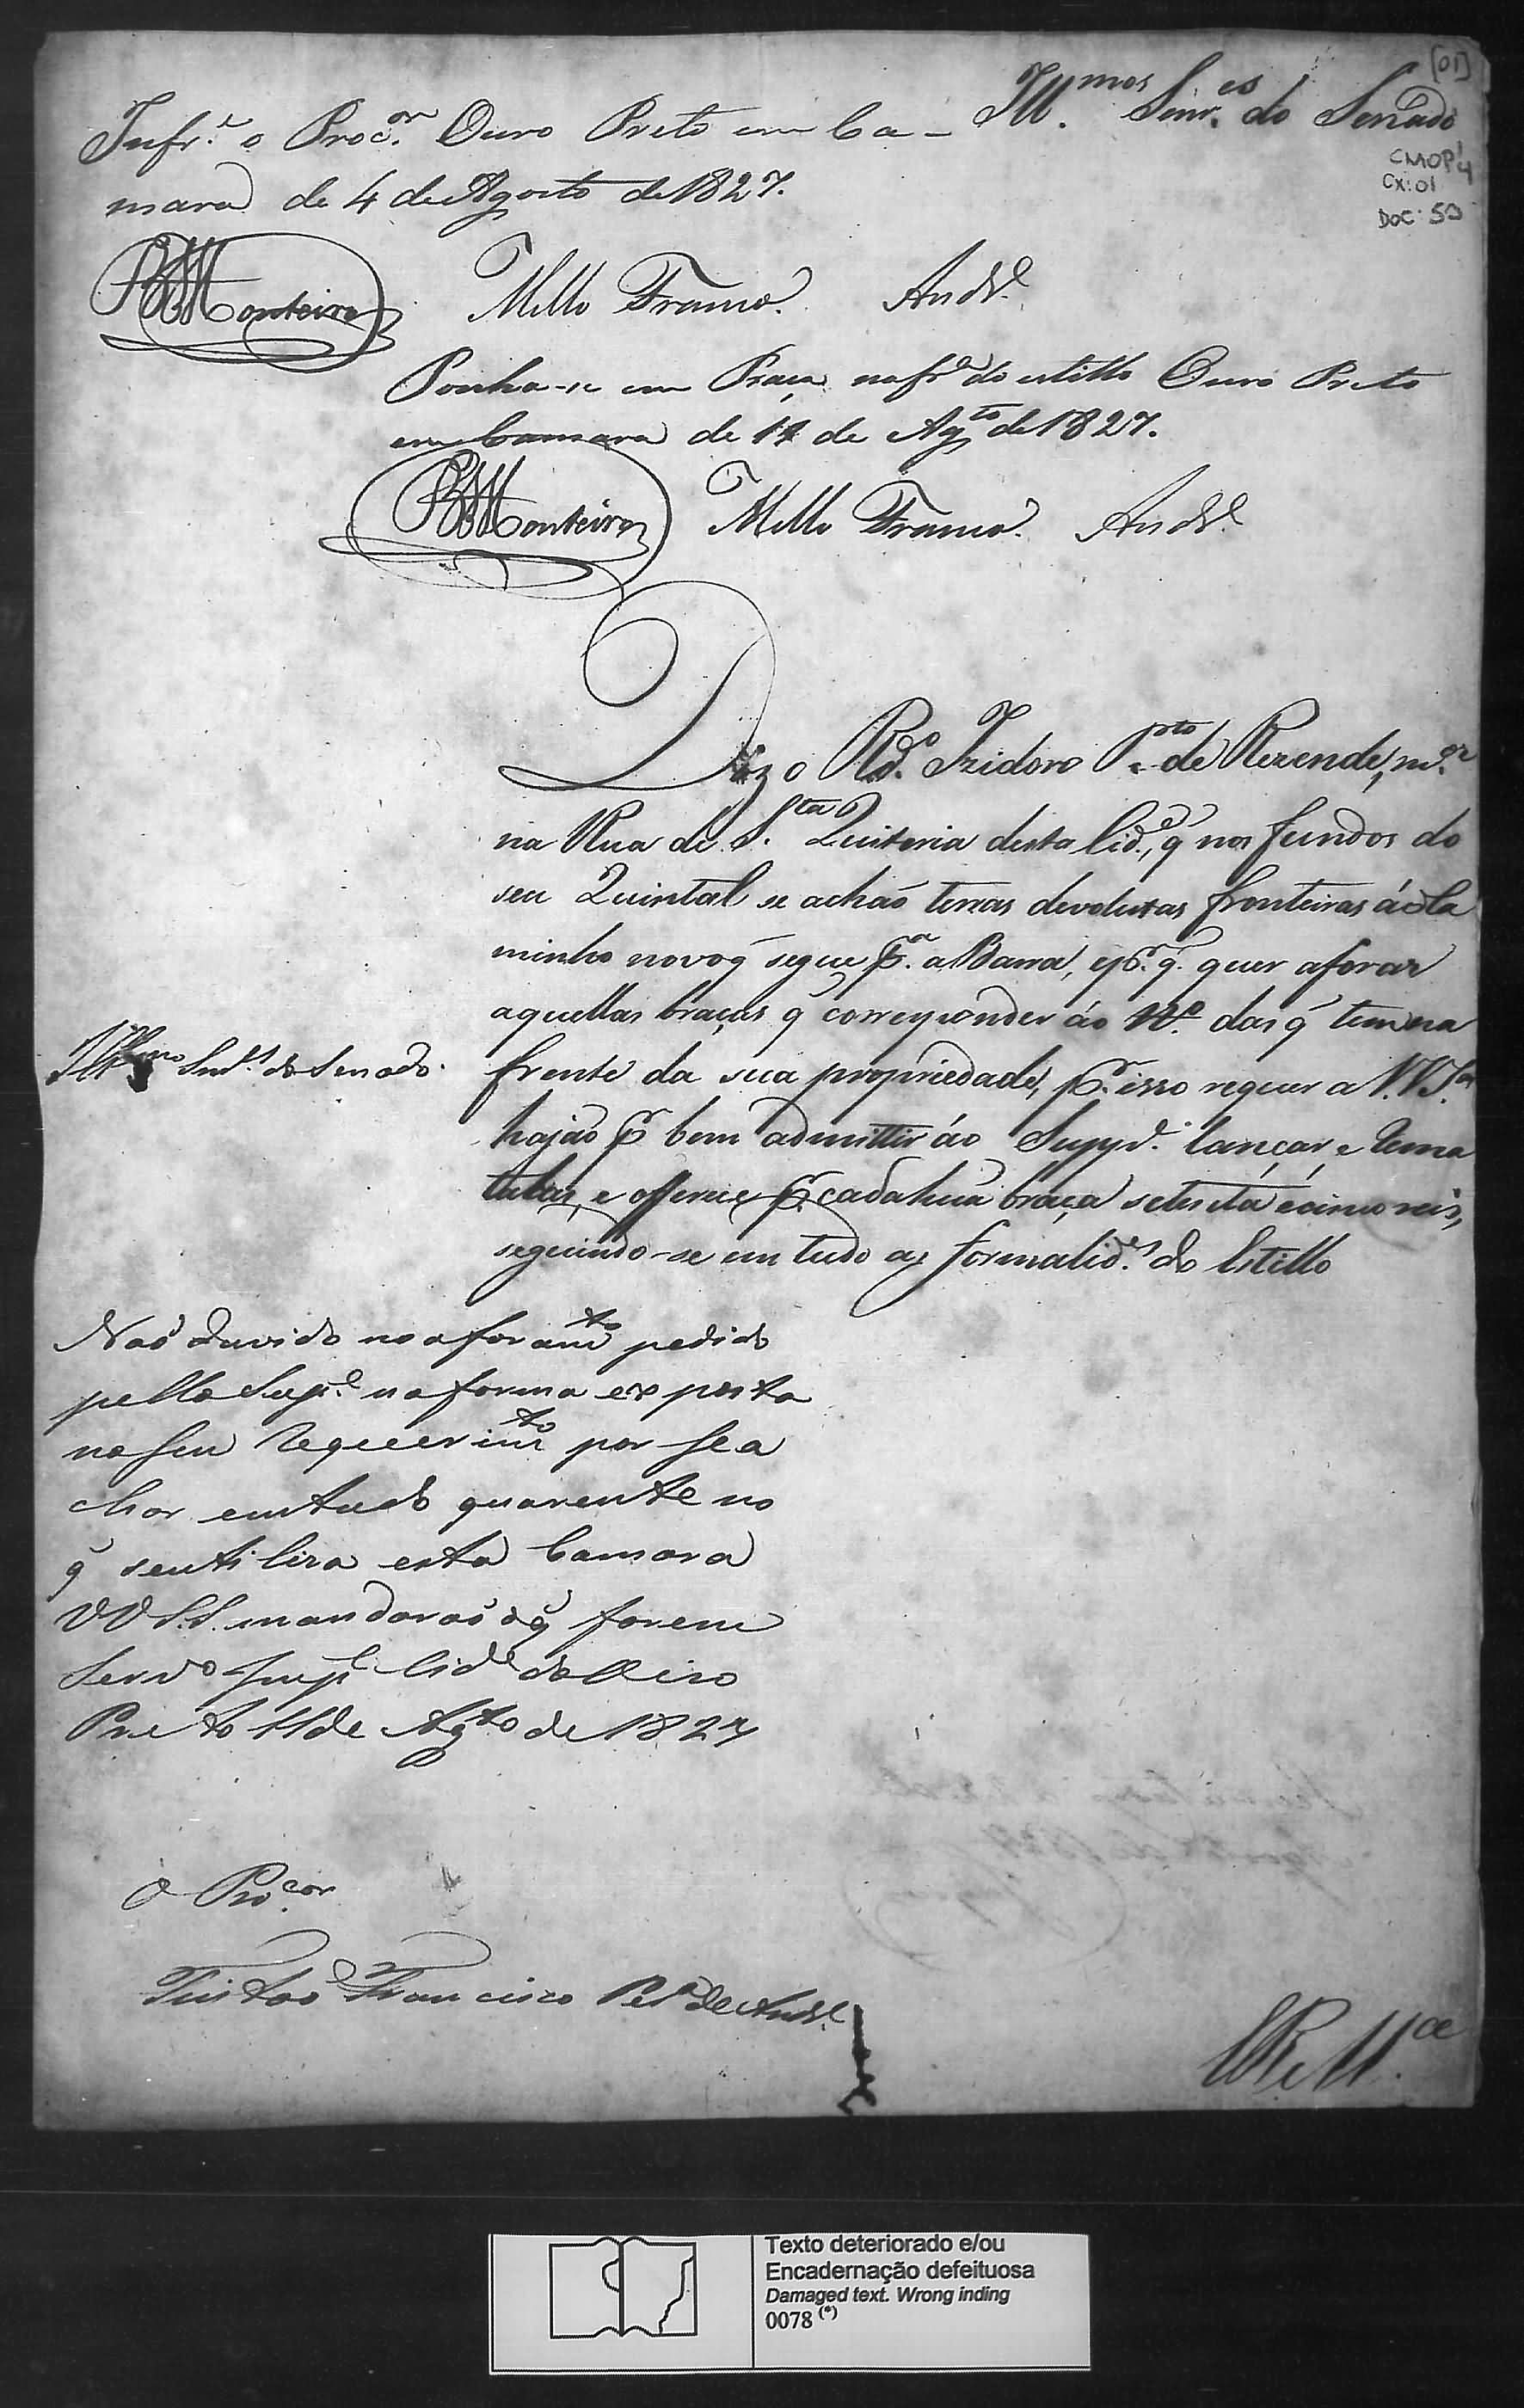 [01]
Ill.mos Snr.es do Senado
CMOP 4
CX: 01
DOC: 53
Infr.e o Proc.or Ouro Preto em Ca-
mara de 4 de Agosto de 1827.
Monteiro Mello Franco. Andr.e
Ponha-se em Praça na fr.a do estillo Ouro Preto
em Camara de 11 de Ag.to de 1827.
Monteiro Mello Franco. Andr.e
Diz o Rd.o Izidoro P.to de Rezende, m.or
na Rua de S.ta Quiteria desta Cid.e, q̃ nos fundos do
seu Quintal se achaõ terras devolutas fronteiras áo Ca
minho novo q̃ segue p.a a Barra, e p.r q̃. quer aforar
aquellas braças q̃ corresponder áo N.o das q̃ tem na
frente da sua propriedade, p.r isso requer a V.V.S.as
hajaõ p.r bem admittir áo Supp.e lançar e Rema
talas, e offerece p.r cada huã braça setenta e cinco reis,
seguindo-se em tudo as formalid.es do Estillo
Ill.mo Snr.es do Senado.
Naõ duvido no aforam.to pedido
pello Sup.e na forma exposta
no seu Requerim.to por se a
char em tudo quarente no
q̃ se utiliza esta Camara
VV S.S. mandaraõ o q̃ forem
Serv.o Imp.l Cid.e do Oiro
Preto 11 de Ag.to de 1827
O Pro.cor
Tristaõ Francisco Per.a de Andr.e
E R M.ce
Texto deteriorado e/ou
Encadernação defeituosa
Damaged text. Wrong inding
0078 (*)